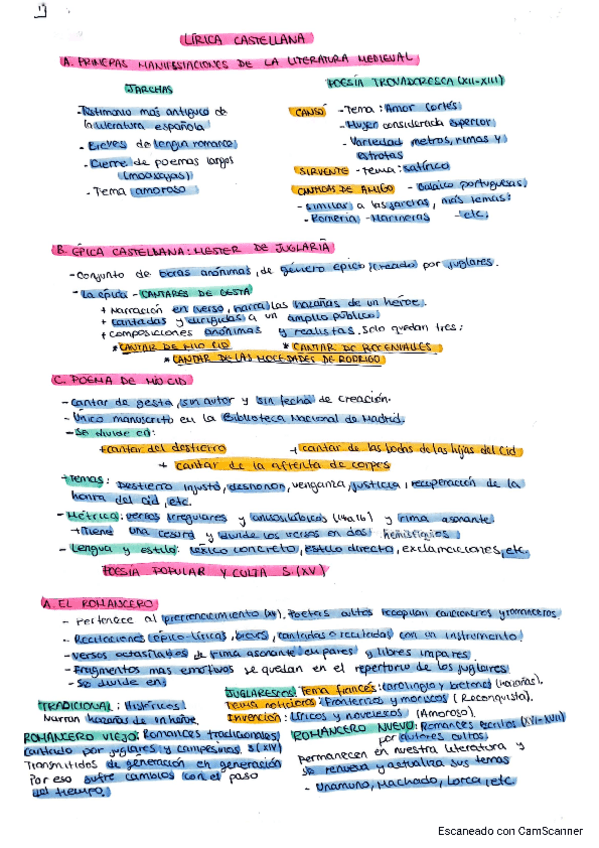 LÍRICA CASTELLANA
A. PRIMERAS MANIFESTACIONES DE LA LITERATURA MEDIEVAL
JARCHAS
-Testimonio más antiguo de
la literatura española
- Breves de lengua romance
- Cierre de poemas largos
(moaxajas)
- Tema amoroso
POESÍA TROVADORESCA (XII-XIII)
CANSÓ -Tema: Amor cortés
- Mujer considerada superior
- Variedad metros, rimas y
estrofas
SIRVENTE - Tema: satírico
CANTIGAS DE AMIGO - Galaico portuguesas
- Similar a las jarchas, más temas:
- Romería - Marineras - etc.
B. ÉPICA CASTELLANA: MESTER DE JUGLARÍA
- Conjunto de obras anónimas, de género épico creado por juglares.
- La épica - CANTARES DE GESTA
+ Narración en verso, narra las hazañas de un héroe.
+ cantadas y dirigidas a un amplio público
+ Composiciones anónimas y realistas. Solo quedan tres:
* CANTAR DE MIO CID * CANTAR DE RONCESVALLES
* CANTAR DE LAS MOCEDADES DE RODRIGO
C. POEMA DE MÍO CID
- Cantar de gesta, sin autor y sin fecha de creación.
- Único manuscrito en la Biblioteca Nacional de Madrid.
- Se divide en:
+ cantar del destierro + cantar de las bodas de las hijas del Cid
+ cantar de la afrenta de corpes
+ Temas: Destierro injusto, deshonor, venganza, justicia, recuperación de la
honra del Cid, etc.
- Métrica: versos irregulares y anisosilábicos (14 a 16) y rima asonante
+ Tiene una cesura y divide los versos en dos hemistiquios
- Lengua y estilo: léxico concreto, estilo directo, exclamaciones, etc.
POESÍA POPULAR Y CULTA S.(XV)
A. EL ROMANCERO
- Pertenece al prerrenacimiento (XV). Poetas cultos recopilan cancioneros y romanceros.
- Recitaciones épico-líricas, breves, cantadas o recitadas con un instrumento.
- Versos octosílabos de rima asonante en pares y libres impares.
- Fragmentos más emotivos se quedan en el repertorio de los juglares.
- Se divide en:
TRADICIONAL: Históricos
Narran hazañas de un héroe.
JUGLARESCOS: Tema francés: carolingio y bretones (hazañas).
Tema noticieros: Fronterizos y moriscos (Reconquista).
Invención: Líricos y novelescos (Amoroso).
ROMANCERO VIEJO: Romances tradicionales
cantado por juglares y campesinos. S(XIV)
Transmitidos de generación en generación
Por eso sufre cambios con el paso
del tiempo.
ROMANCERO NUEVO: Romances escritos (XVI-XVII)
por autores cultos.
Permanecen en nuestra literatura y
se renueva y actualiza sus temas
- Unamuno, Machado, Lorca, etc.
Escaneado con CamScanner